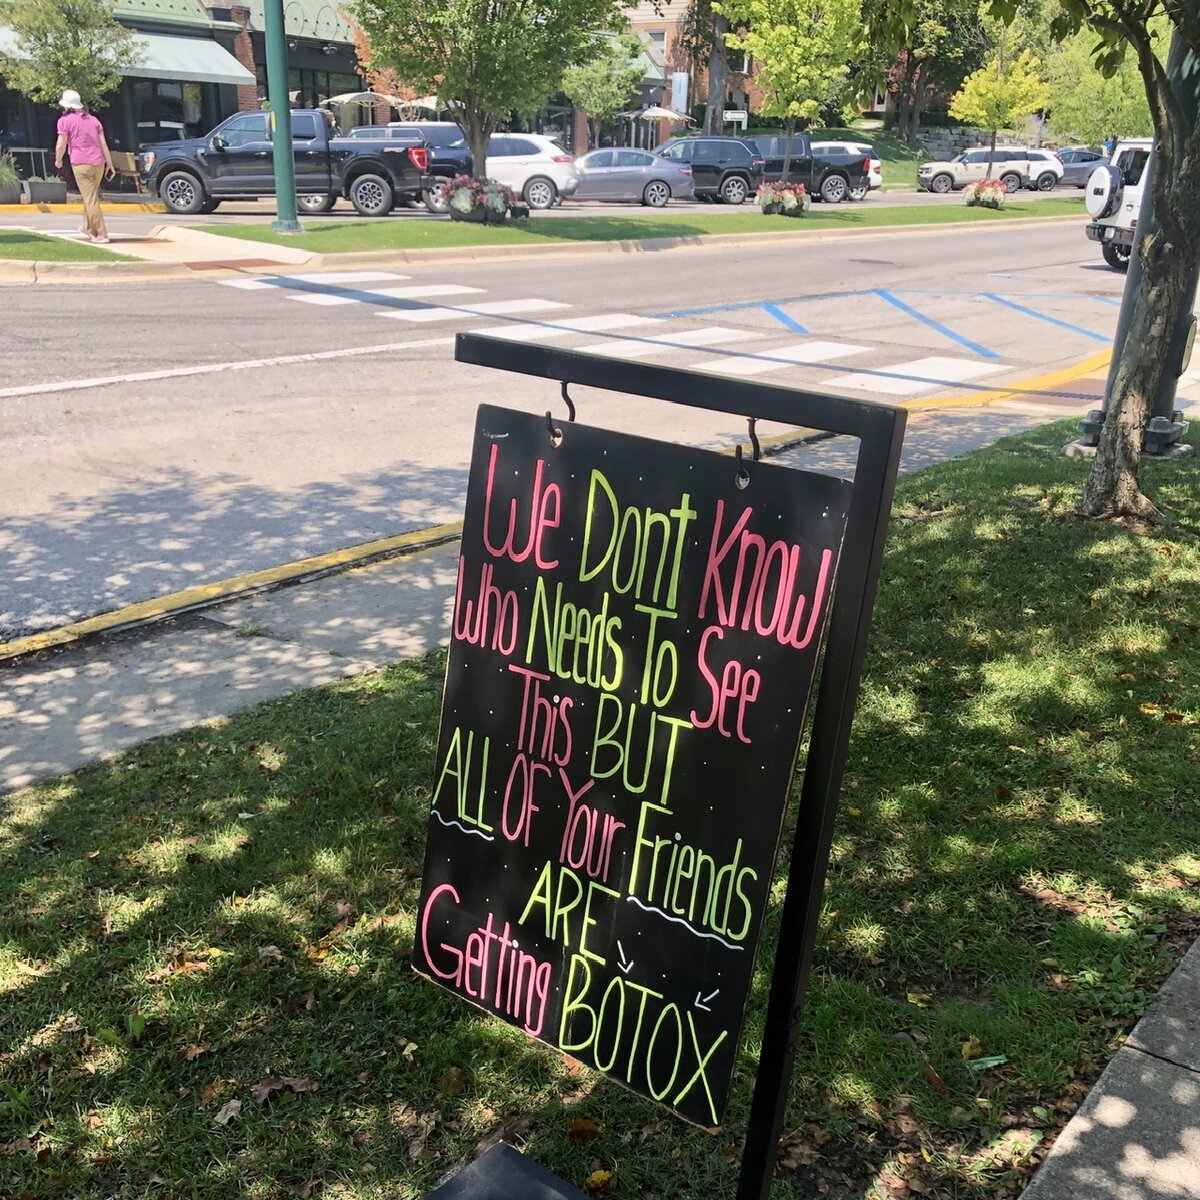 We Dont Know
Who Needs To See
This BUT
ALL OF Your Friends
ARE
Getting BOTOX